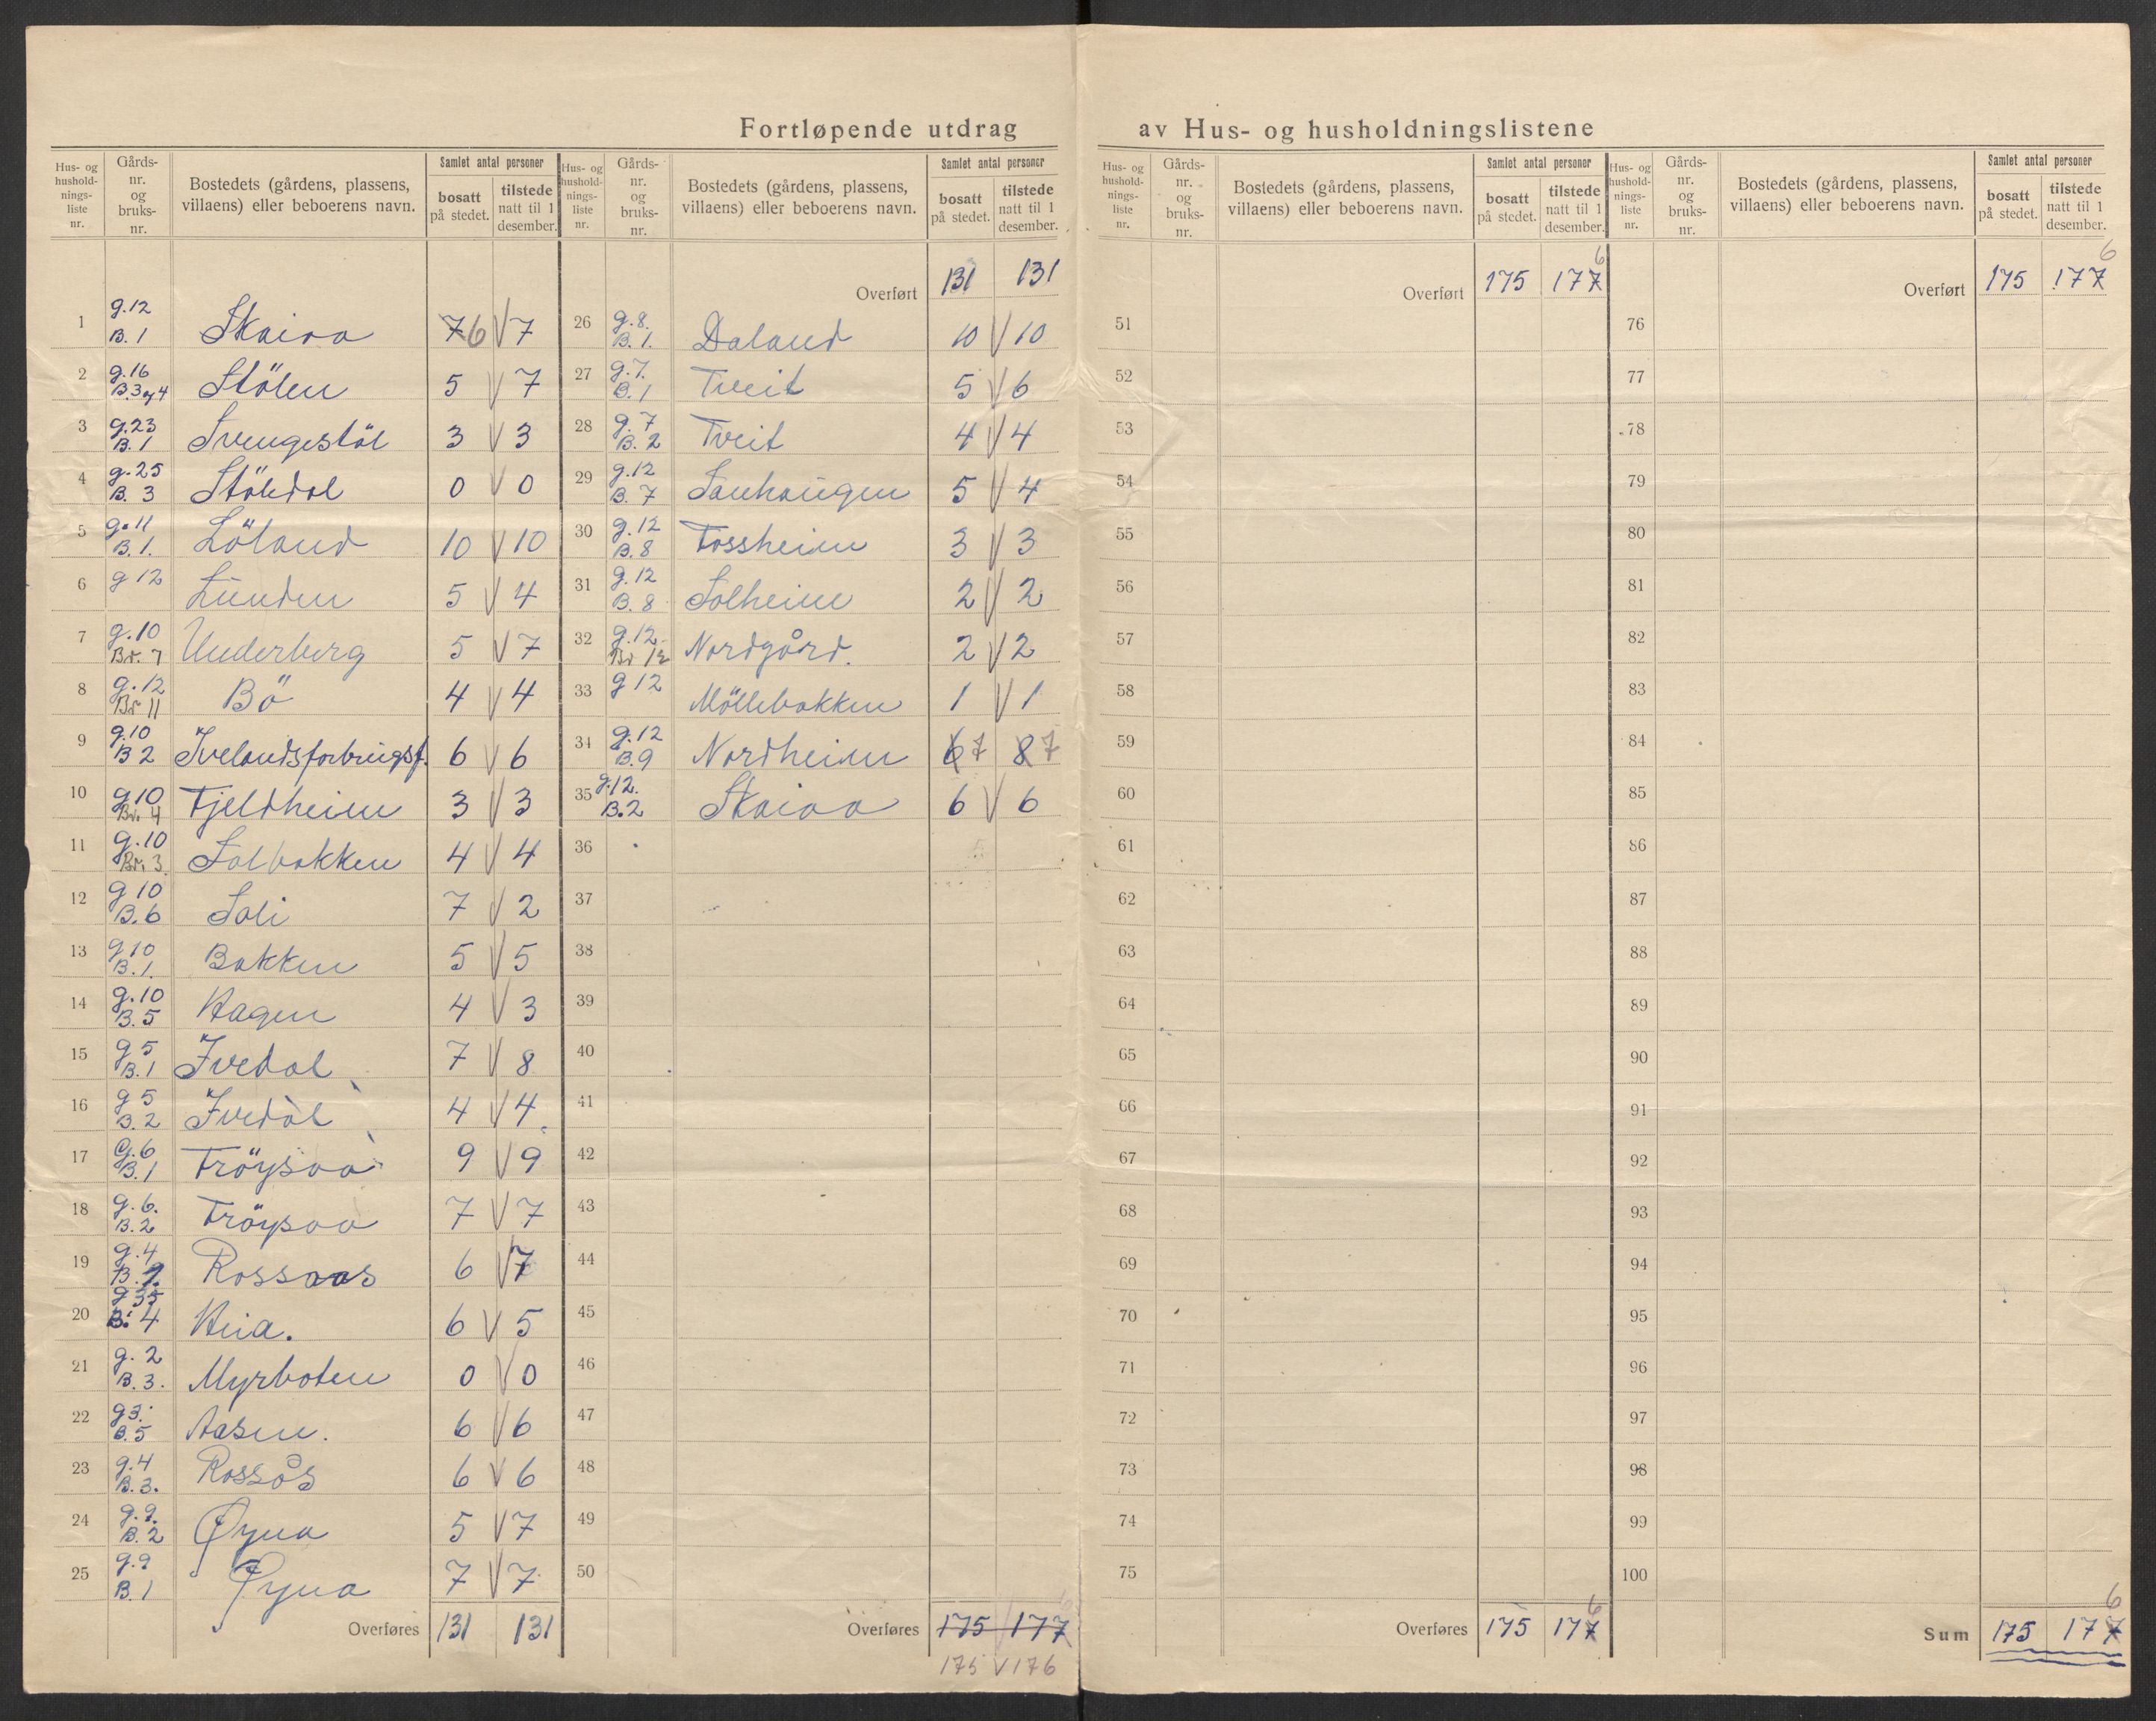 Fortløpende utdrag av Hus- og husholdningslistene
Hus- og husholdnings-liste nr. Gårds-nr. og bruks-nr. Bostedets (gårdens, plassens, villaens) eller beboerens navn. Samlet antal personer bosatt på stedet. tilstede natt til 1 desember.
1 g.12 B.1 Skaiaa 7 6 V 7
2 g.16 B.3 og 4 Stölen 5 V 7
3 g.23 B.1 Svengestöl 3 V 3
4 g.25 B.3 Stöledal 0 V 0
5 g.11 B.1. Löland 10 V 10
6 g 12 Lunden 5 V 4
7 g.10 Br. 7 Underberg 5 V 7
8 g.12 Br 11 Bö 4 V 4
9 g.10 B 2 6 V 6
10 g10 Br. 4 Fjeldheim 3 V 3
11 g.10 Br. 3. Solbakken 4 V 4
12 g 10 B.6 Soli 7 V 2
13 g 10 B.1. Bakken 5 V 5
14 g.10 B.5 Hagen 4 V 3
15 g 5 B.1 Ivedal 7 V 8
16 g 5 B.2 Ivedal 4 V 4
17 G.6 B.1 Fröysaa 9 V 9
18 g.6. B.2 Fröysaa 7 V 7
19 g.4 B. Rossaas 6 V 7
20 g 35 B. 4 Heia. 6 V 5
21 g. 2 B.3. Myrboten 0 V 0
22 g3. B.5 Aasen. 6 V 6
23 g.4 B.3. Rossås 6 V 6
24 g.9. B.2 Øyna 5 V 7
25 g.9 B.1 Øyna 7 V 7
Overføres 131 131
Hus- og husholdnings-liste nr. Gårds-nr. og bruks-nr. Bostedets (gårdens, plassens, villaens) eller beboerens navn. Samlet antal personer bosatt på stedet. tilstede natt til 1 desember.
Overført 131 131
26 g.8. B.1. Daland 10 V 10
27 g.7. B.1 Tveit 5 V 6
28 g.7 B.2 Tveit 4 V 4
29 g.12 B.7 Sauhaugen 5 V 4
30 g.12 B.8 Fossheim 3 V 3
31 g.12 B.8 Solheim 2 V 2
32 g.12. Br 12 Nordgård. 2 V 2
33 g 12 Möllebakken 1 V 1
34 g.12 B.9 Nordheim 6 7 8 7
35 g.12. B.2 Skaiaa 6 V 6
36
37
38
39
40
41
42
43
44
45
46
47
48
49
50
Overføres 175 177
175 V 176
Hus- og husholdnings-liste nr. Gårds-nr. og bruks-nr. Bostedets (gårdens, plassens, villaens) eller beboerens navn. Samlet antal personer bosatt på stedet. tilstede natt til 1 desember.
Overført 175 177 6
51
52
53
54
55
56
57
58
59
60
61
62
63
64
65
66
67
68
69
70
71
72
73
74
75
Overføres 175 177 6
Hus- og husholdnings-liste nr. Gårds-nr. og bruks-nr. Bostedets (gårdens, plassens, villaens) eller beboerens navn. Samlet antal personer bosatt på stedet. tilstede natt til 1 desember.
Overført 175 177 6
76
77
78
79
80
81
82
83
84
85
86
87
88
89
90
91
92
93
94
95
96
97
98
99
100
Sum 175 177 6